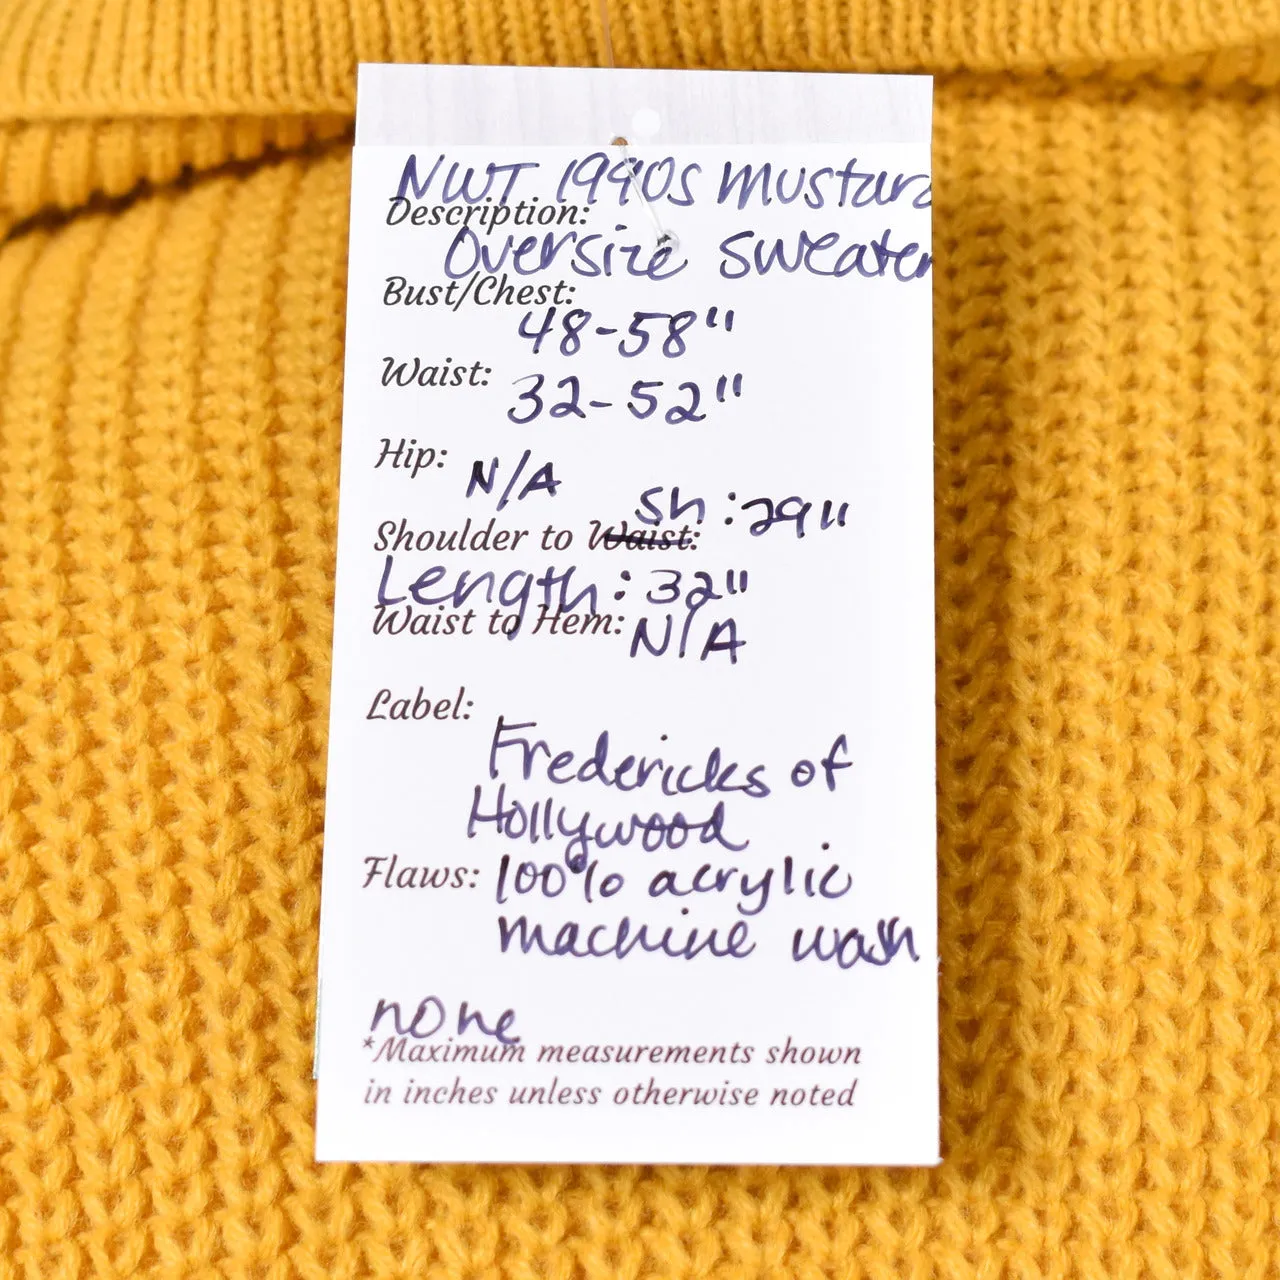 NWT 1990s mustard
Description:
Oversize sweater
Bust/Chest:
48-58"
Waist: 32-52"
Hip: N/A
Shoulder to Waist: Sh: 29"
Length: 32"
Waist to Hem: N/A
Label:
Fredericks of
Hollywood
Flaws: 100% acrylic
machine wash
none
*Maximum measurements shown
in inches unless otherwise noted